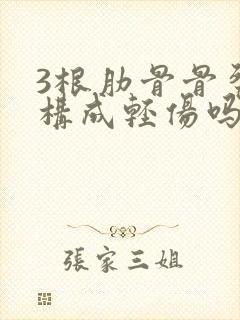 3根肋骨骨
構成輕傷吗
張家三姐